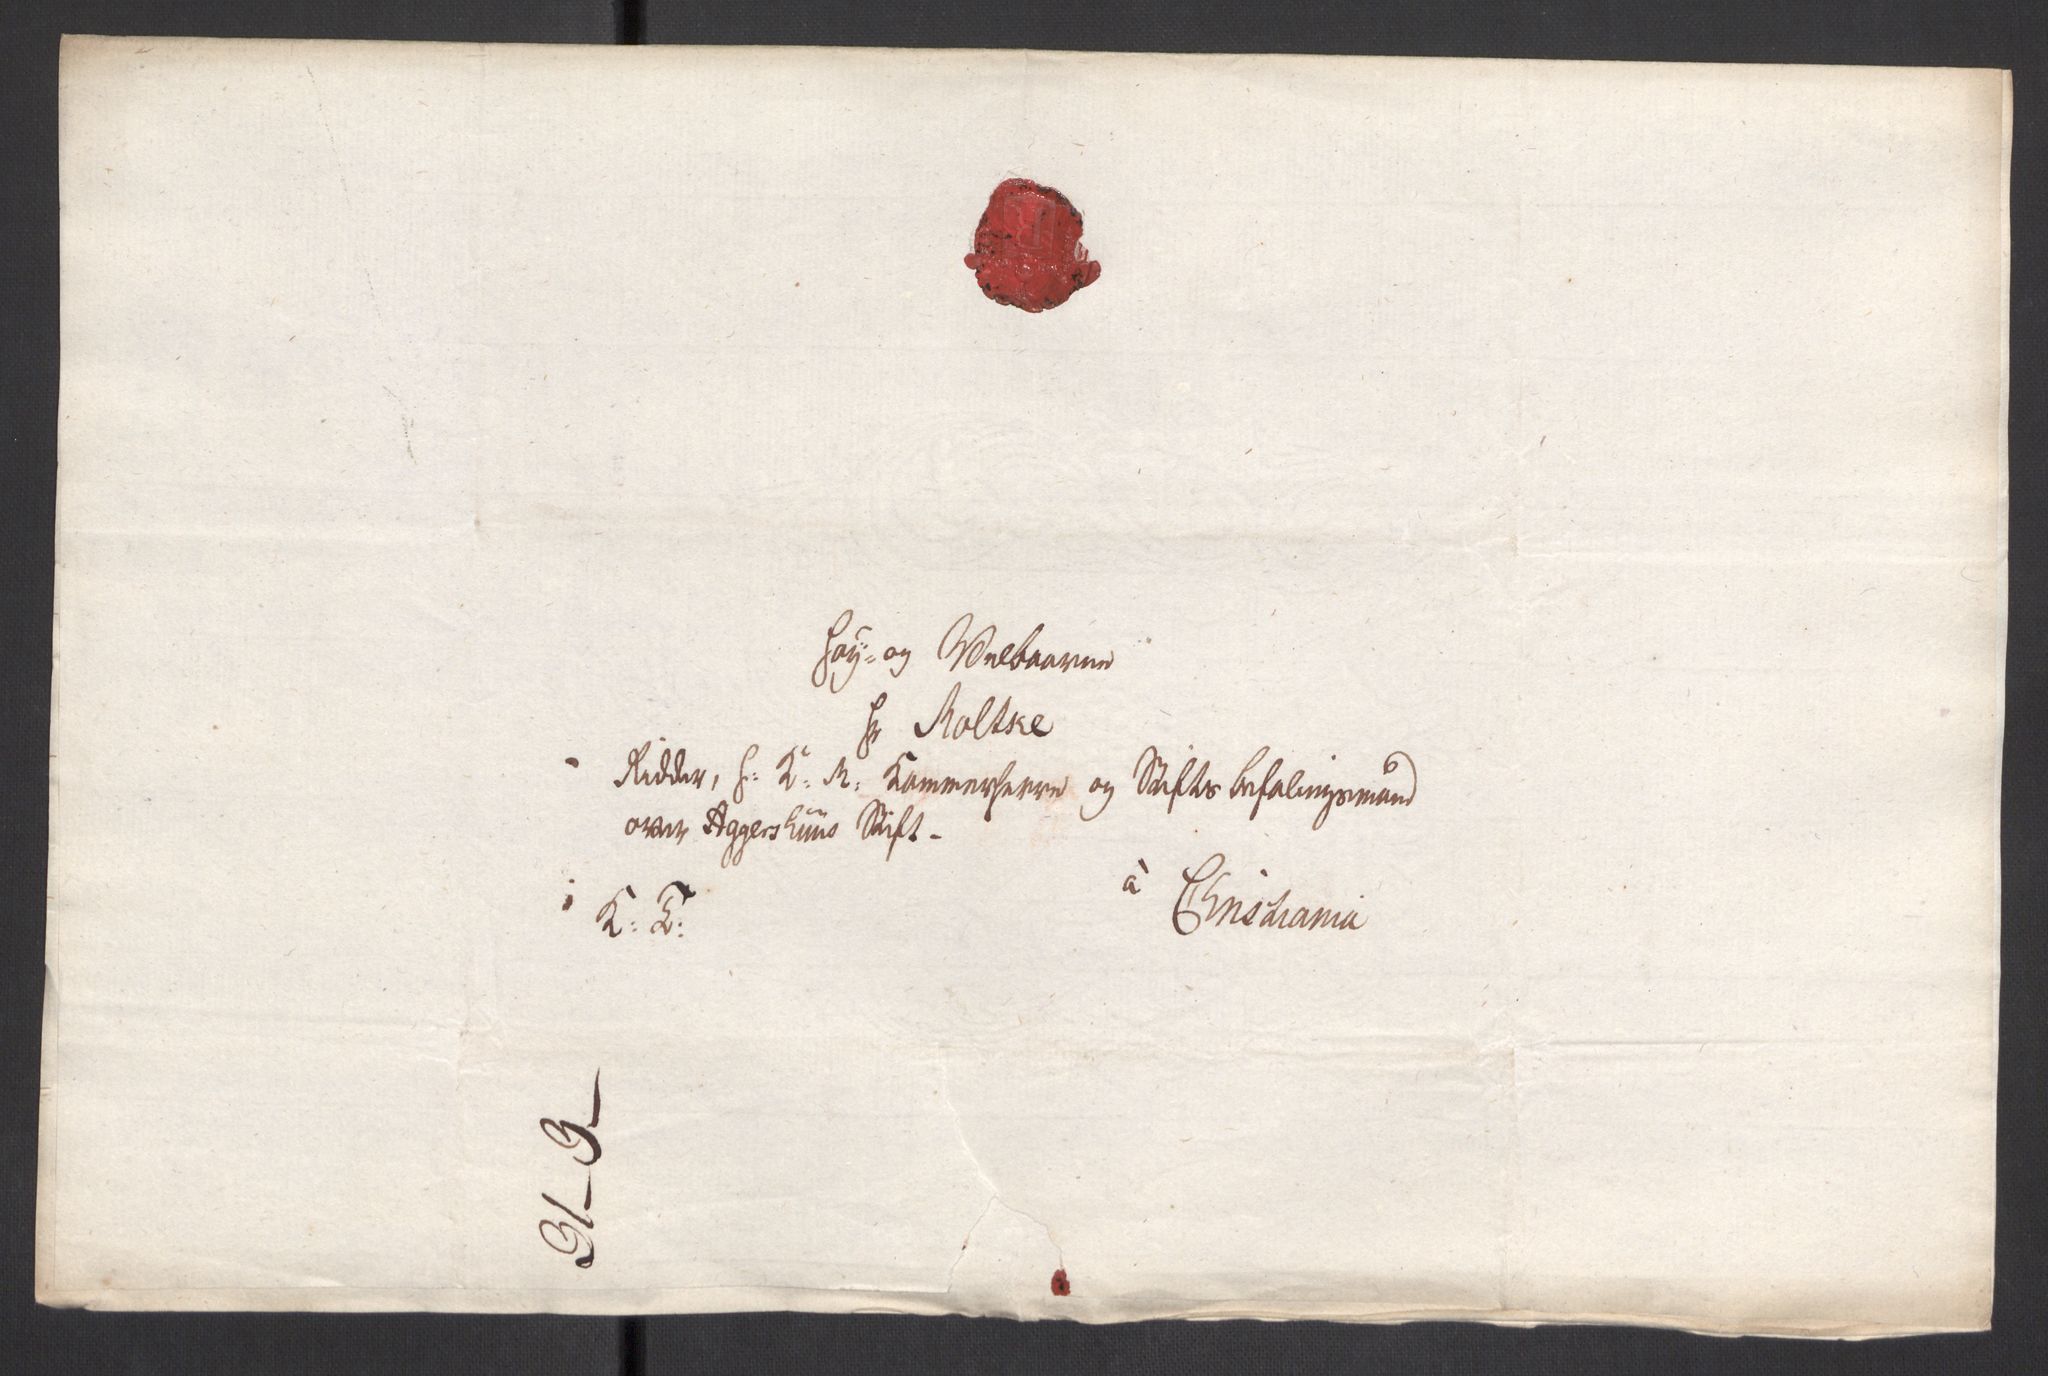 Høy- og Velbaarne
Hr Moltke
Ridder, H: K: M: Kammerherre og Stifts befalingsmand
over Aggershuus Stift -
à Christiania
K: T: